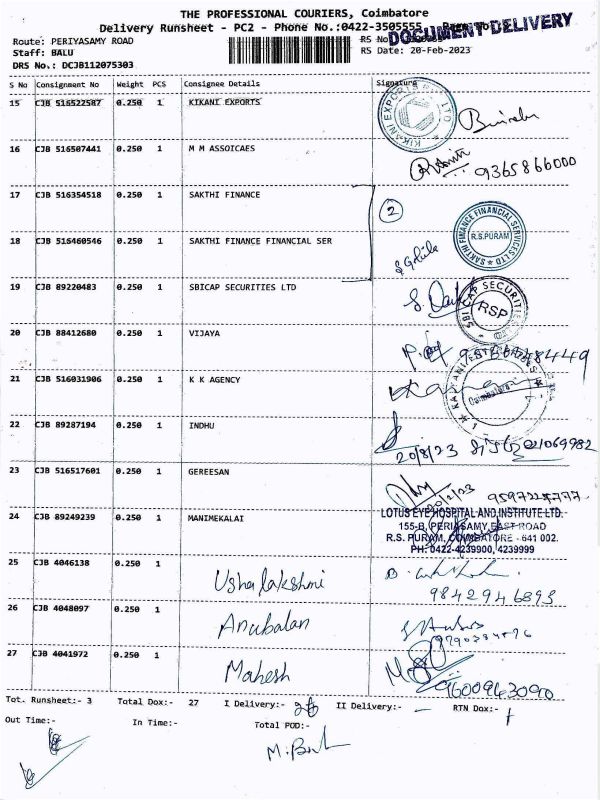 THE PROFESSIONAL COURIERS, Coimbatore
Delivery Runsheet - PC2 - Phone No.:0422-3505555
DOCUMENT DELIVERY
Route: PERIYASAMY ROAD
RS No
Staff: BALU
RS Date: 20-Feb-2023
DRS No.: DCJB112075303
S No Consignment No Weight PCS Consignee Details Signature
15 CJB 516522587 0.250 1 KIKANI EXPORTS
KIKANI EXPORTS LTD
16 CJB 516507441 0.250 1 M M ASSOICAES
9365866000
17 CJB 516354518 0.250 1 SAKTHI FINANCE
2
SAKTHI FINANCE FINANCIAL SERVICES LTD
R.S.PURAM
18 CJB 516460546 0.250 1 SAKTHI FINANCE FINANCIAL SER
19 CJB 89220483 0.250 1 SBICAP SECURITIES LTD
SBICAP SECURITIES LTD
RSP
20 CJB 88412680 0.250 1 VIJAYA
21 CJB 516031906 0.250 1 K K AGENCY
Coimbatore
22 CJB 89287194 0.250 1 INDHU
23 CJB 516517601 0.250 1 GEREESAN
24 CJB 89249239 0.250 1 MANIMEKALAI
LOTUS EYE HOSPITAL AND INSTITUTE LTD.
155-B, PERIASAMY EAST ROAD
R.S. PURAM, COIMBATORE - 641 002.
PH: 0422-4239900, 4239999
25 CJB 4046138 0.250 1
Usha lakshmi
9842946893
26 CJB 4048097 0.250 1
Anubalan
27 CJB 4041972 0.250 1
Mahesh
9600943090
Tot. Runsheet:- 3 Total Dox:- 27 I Delivery:- 26 II Delivery:- — RTN Dox:- 1
Out Time:- In Time:- Total POD:-